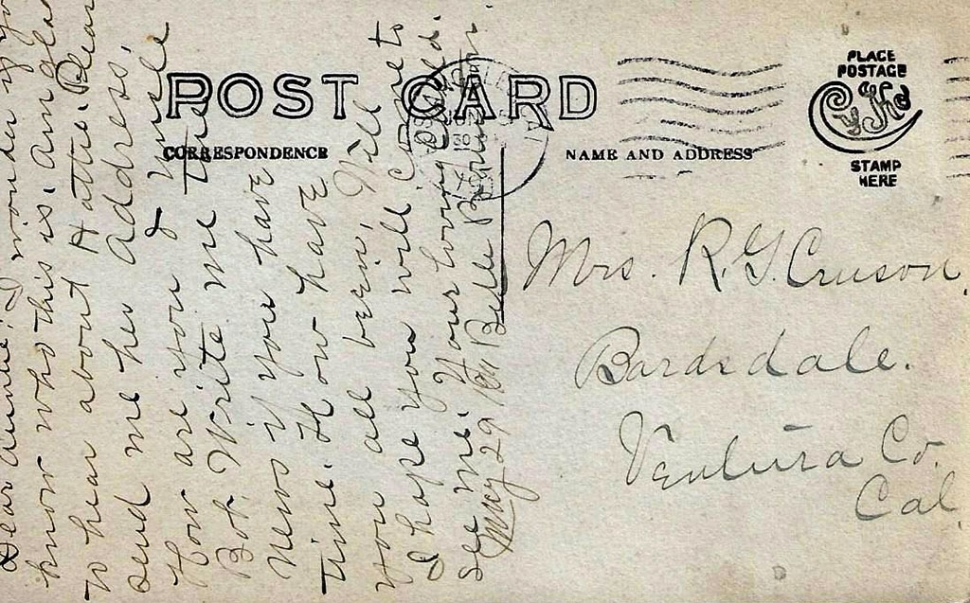 POST CARD
CORRESPONDENCE
NAME AND ADDRESS
PLACE
POSTAGE
STAMP
HERE
Dear Auntie: I wonder if you
know who this is. Am glad
to hear about Hattie. Please
send me her address.
How are you & Uncle
Bob. Write me the
news if you have
time. How have
you all been, Will
I hope you will come to
see me. Your loving
May 29 Belle
Mrs. R.G. Cruson,
Bardsdale.
Ventura Co.
Cal